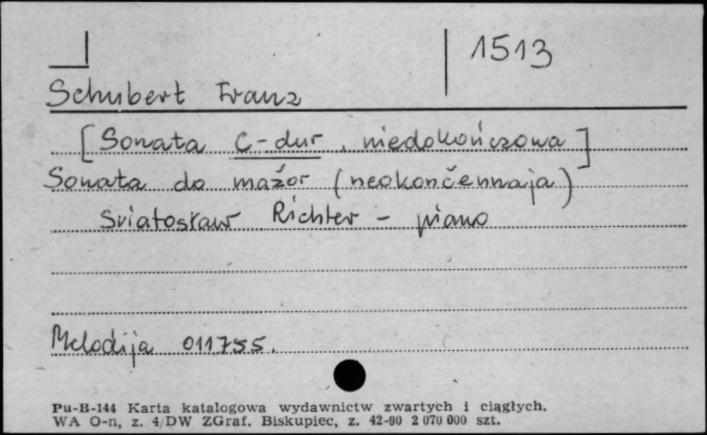 1513
Schubert Franz
[Sonata C-dur, niedokończona]
Sonata do mažor (neokončennaja)
Sviatosław Richter - piano
Melodija 011755.
Pu-B-144 Karta katalogowa wydawnictw zwartych i ciągłych.
WA O-n, z. 4/DW ZGraf. Biskupiec, z. 42-80 2 070 000 szt.